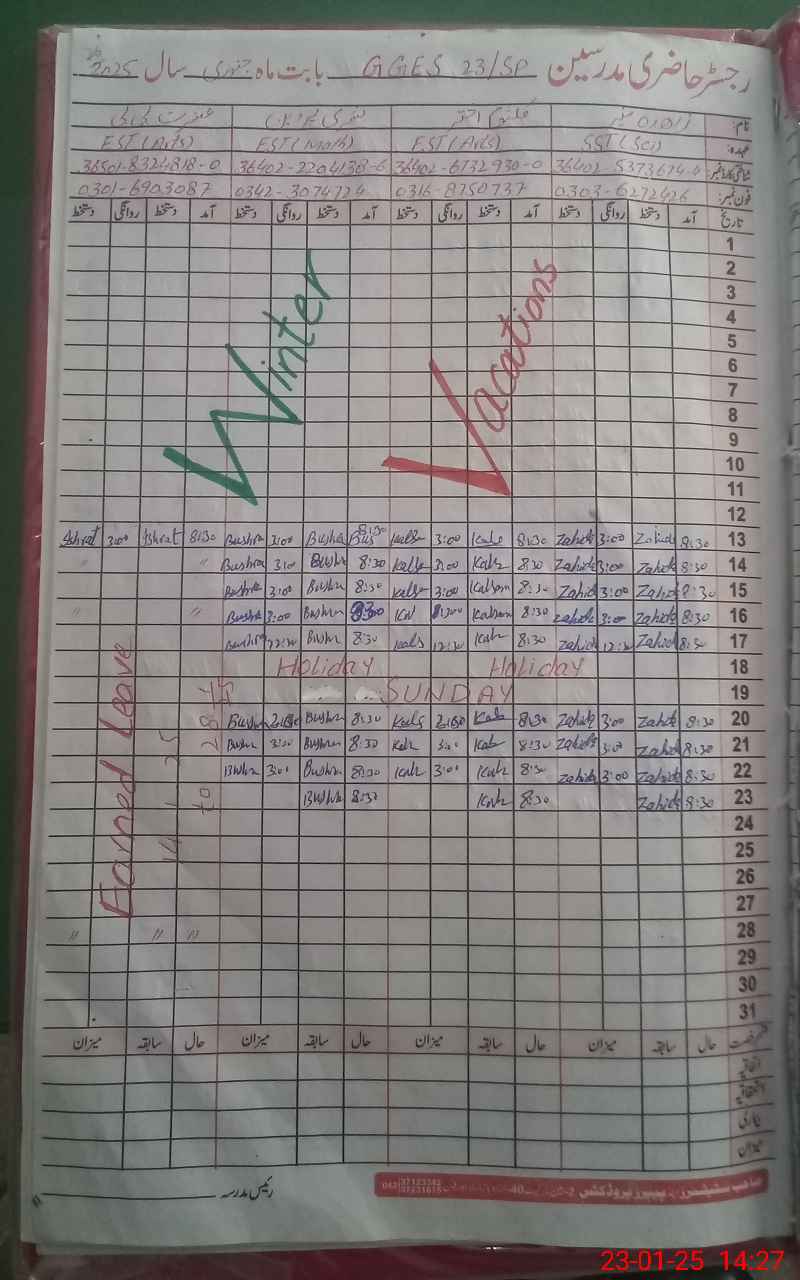 رجسٹر حاضری مدرسین GGES 23/SP بابت ماہ جنوری سال 2025
نام:
عہدہ: SST (Sci) EST (Arts) EST (Math) EST (Arts)
36402-5373674-4 36402-6732930-0 36402-2204138-6 36501-8324818-0
فون نمبر: 0303-6272426 0316-8750737 0342-3074724 0301-6903087
تاریخ آمد دستخط روانگی دستخط آمد دستخط روانگی دستخط آمد دستخط روانگی دستخط آمد دستخط روانگی دستخط
1
2
3
4
5
6
7
8
9
10
11
12
Winter Vacations
13 8:30 Zahida 3:00 Zahida 8:30 Kals 3:00 Kals 8:30 Bushra 3:00 Bushra 8:30 Ishrat 3:00 Ishrat
14 8:30 Zahida 3:00 Zahida 8:30 Kals 3:00 Kals 8:30 Bushra 3:00 Bushra " "
15 8:30 Zahida 3:00 Zahida 8:30 Kalsom 3:00 Kals 8:30 Bushra 3:00 Bushra
16 8:30 Zahida 3:00 Zahida 8:30 Kalsom 3:00 Kal Bushra 3:00 Bushra " "
17 8:30 Zahida 12:30 Zahida 8:30 Kals 12:30 Kals 8:30 Bushra 12:30 Bushra
18 Holiday Holiday
19 SUNDAY
20 8:30 Zahida 3:00 Zahida 8:30 Kals Kals 8:30 Bushra Bushra
21 8:30 Zahida 3:00 Zahida 8:30 Kals 3:00 Kals 8:30 Bushra 3:00 Bushra
22 8:30 Zahida 3:00 Zahida 8:30 Kals 3:00 Kals 8:30 Bushra 3:00 Bushra
23 8:30 Zahida 8:30 Kals 8:30 Bushra
Earned Leave
14 1 25
to 28
24
25
26
27
28 " " "
29
30
31
حال سابقہ میزان حال سابقہ میزان حال سابقہ میزان حال سابقہ میزان
اتفاقیہ
بیماری
میزان
رئیس مدرسہ
23-01-25 14:27